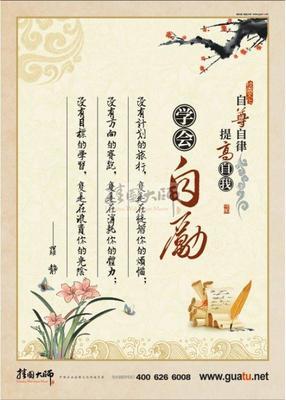 自尊自律
提高自我
学会
自励
没有计划的旅行，
你的烦恼；
没有方向的奔跑，
你的体力；
没有目标的学习，
你的光阴
挂图大师
400 626 6008
www.guatu.net